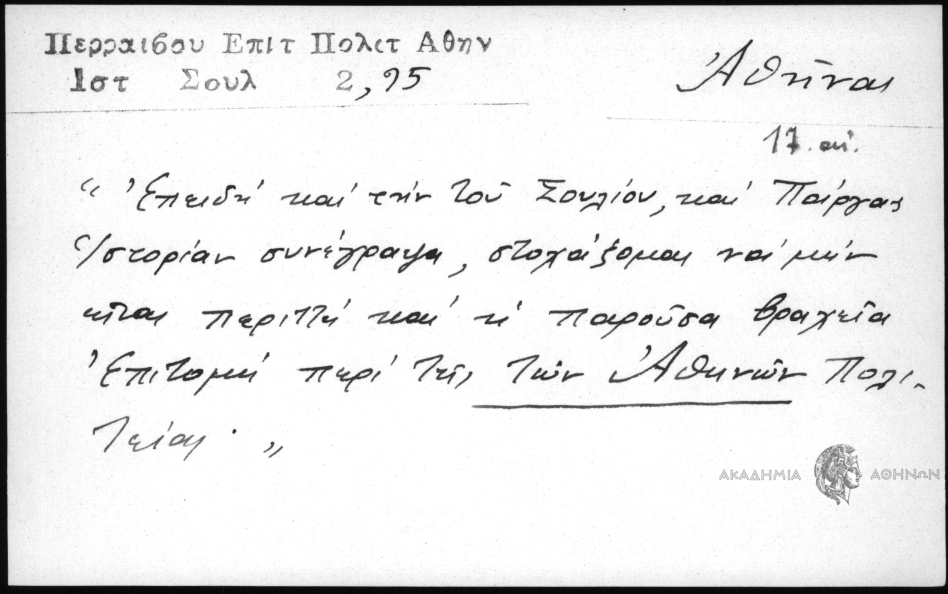 Περραιβου Επιτ Πολιτ Αθην
Ιστ Σουλ 2,95
Ἀθῆναι
17. αἰ.
" Ἐπειδή καί τήν τοῦ Σουλίου, καί Πάργας
Ἱστορίαν συνέγραψα, στοχάζομαι νά μήν
εἶναι περιττή καί ἡ παροῦσα βραχεῖα
Ἐπιτομή περί τῆς τῶν Ἀθηνῶν Πολι-
τείας. "
ΑΚΑΔΗΜΙΑ ΑΘΗΝΩΝ